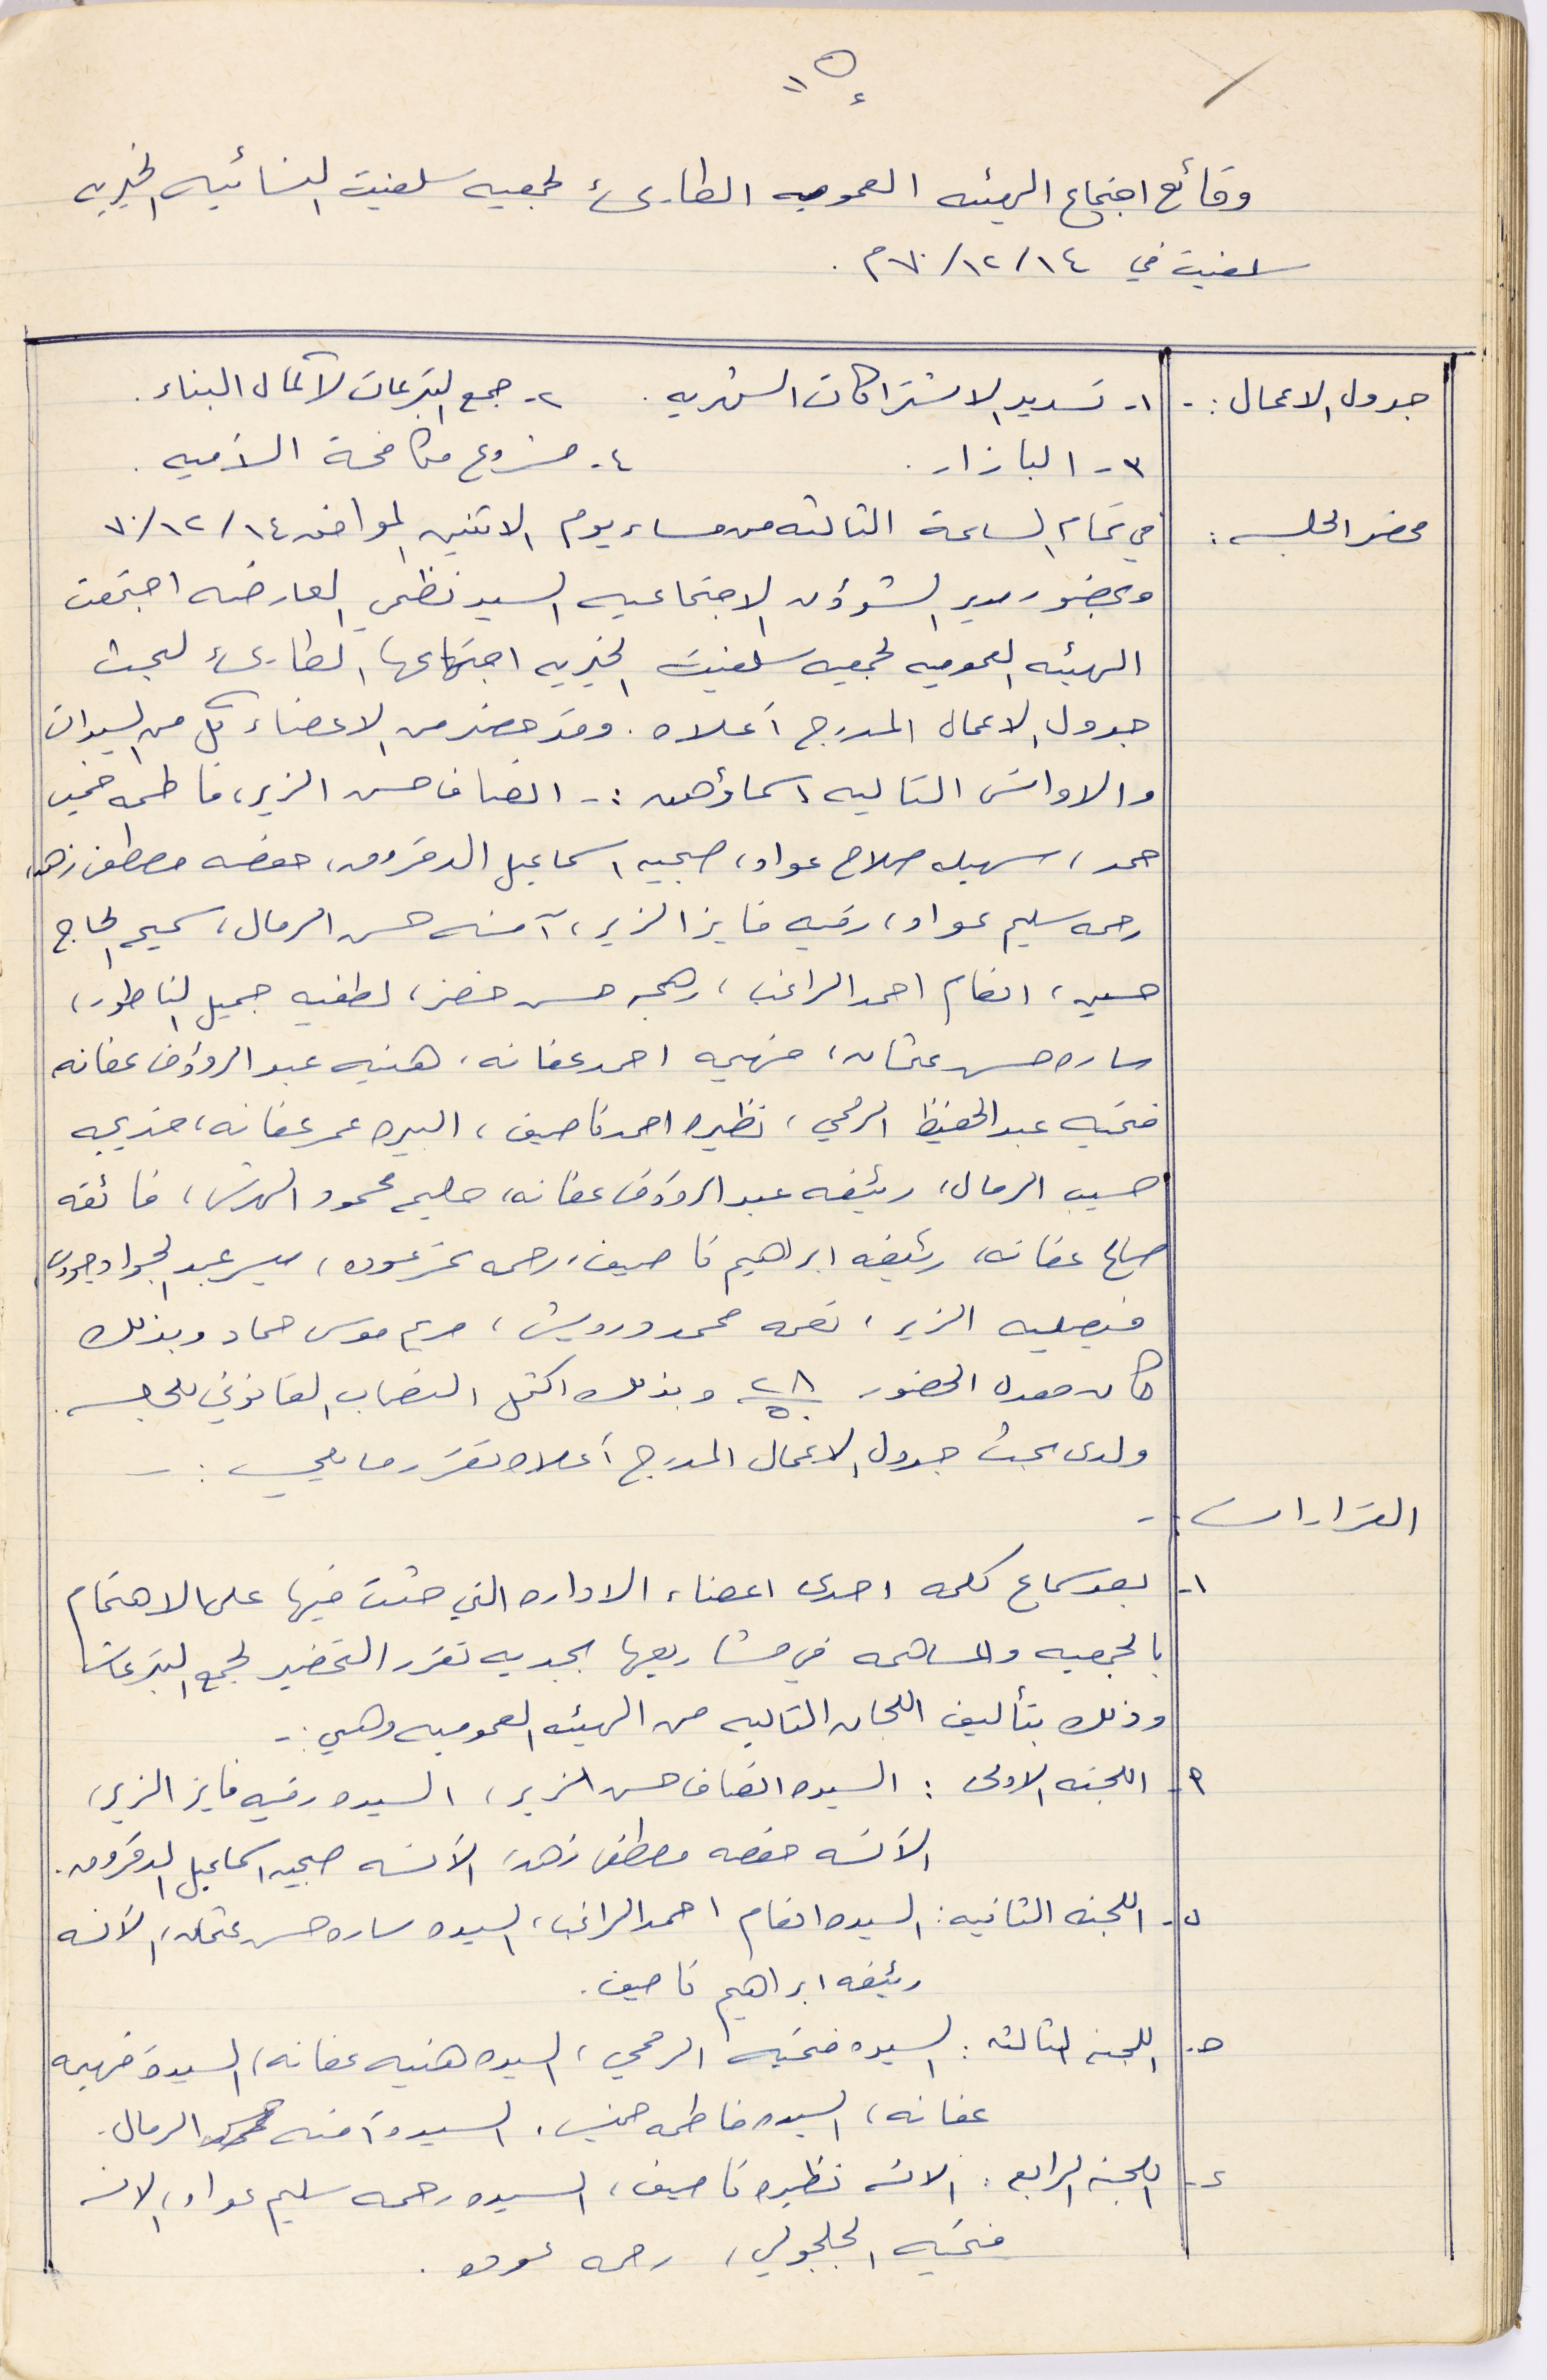 وقائع اجتماع الهيئه العموميه الطارىء لجمعيه سلفيت النسائيه الخيريه
سلفيت في ١٤/١٢/٧٠م.
جدول الاعمال :- ١- تسديد الاشتراكات الشهريه. ٢- جمع التبرعات لاكمال البناء.
٣- البازار. ٤- مشروع مكافحة الأميه.
محضر الجلسه : في تمام الساعة الثالثه من مساء يوم الاثنين الموافق ١٤/١٢/٧٠
وبحضور مدير الشؤون الاجتماعيه السيد نظمي العارضه اجتمعت
الهيئه العموميه لجمعيه سلفيت الخيريه اجتماعها الطارىء لبحث
جدول الاعمال المدرج أعلاه. وقد حضر من الاعضاء كل من السيدات
والاوانس التاليه اسماؤهن :- انصاف حسن الزير، فاطمه خميس
حمد، سهيله صلاح عواد، صبحيه اسماعيل الدقروق، حفصه مصطفى زهد،
رحمه سليم عواد، رقيه فايز الزير، آمنه حسن الرمال، سميحه الحاج
حسين، انعام احمد الراغب، رهجه حسن خضر، لطفيه جميل الناطور،
ساره حسن عثمان، فهيمه احمد عفانه، هنيه عبد الرؤوف عفانه
فتحيه عبد الحفيظ الرمحي، نظيره احمد ناصيف، البيره عمر عفانه، خديجه
حسيب الرمال، رئيفه عبد الرؤوف عفانه، حليمه محمود الهرش، فائقه
صالح عفانه، رئيفه ابراهيم ناصيف، رحمه عوده، ميسر عبد الجواد
فيصليه الزير، نعمه محمد درويش، مريم موسى حماد وبذلك
كان معدل الحضور ٢٨/٥٠ وبذلك اكتمل النصاب القانوني للجلسه.
ولدى بحث جدول الاعمال المدرج أعلاه تقرر ما يلي :-
القرارات :-
١- بعد سماع كلمه احدى اعضاء الاداره التي حثت فيها على الاهتمام
بالجمعيه والمساهمه في مشاريعها بجديه تقرر التحضير لجمع التبرعات
وذلك بتأليف اللجان التاليه من الهيئه العموميه وهي :-
أ- اللجنه الاولى : السيده انصاف حسن الزير، السيده رقيه فايز الزير،
الآنسه حفصه مصطفى زهد، الآنسه صبحيه اسماعيل الدقروق.
ب- اللجنه الثانيه : السيده انعام احمد الراغب، السيده ساره حسن عثمان، الآنسه
رئيفه ابراهيم ناصيف.
ج- اللجنه الثالثه : السيده فتحيه الرمحي، السيده هنيه عفانه، السيده فهيمه
عفانه، السيده فاطمه خميس، السيده آمنه حسن الرمال.
د- اللجنه الرابعه : الانسه نظيره ناصيف، السيده رحمه سليم عواد، الانسه
فتحيه الجلجولي، رحمه عوده.